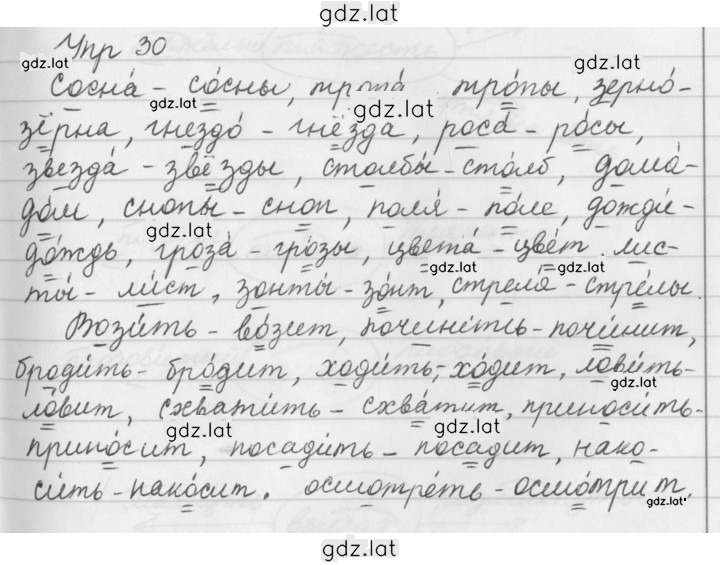 gdz.lat
Упр 30
gdz.lat gdz.lat
Сосна́ - со́сны, тропы, зерно́-
gdz.lat gdz.lat
зёрна, гнездо́ - гнёзда, роса́ - ро́сы,
звезда́ - звёзды, столбы́ - столб, дома́-
дом, снопы́ - сноп, поля́ - по́ле, дожди́-
gdz.lat
до́ждь, гроза́ - гро́зы, цвета́ - цве́т лис-
gdz.lat gdz.lat
ты́ - ли́ст, зонты́ - зо́нт, стрела́ - стре́лы.
Вози́ть - во́зит, почини́ть - почи́нит,
броди́ть - бро́дит, ходи́ть - хо́дит, лови́ть-
gdz.lat
ло́вит, схвати́ть - схва́тит, приноси́ть-
gdz.lat gdz.lat
прино́сит, посади́ть - посадит, нако-
си́ть - нако́сит. осмотре́ть - осмо́трит.
gdz.lat
gdz.lat